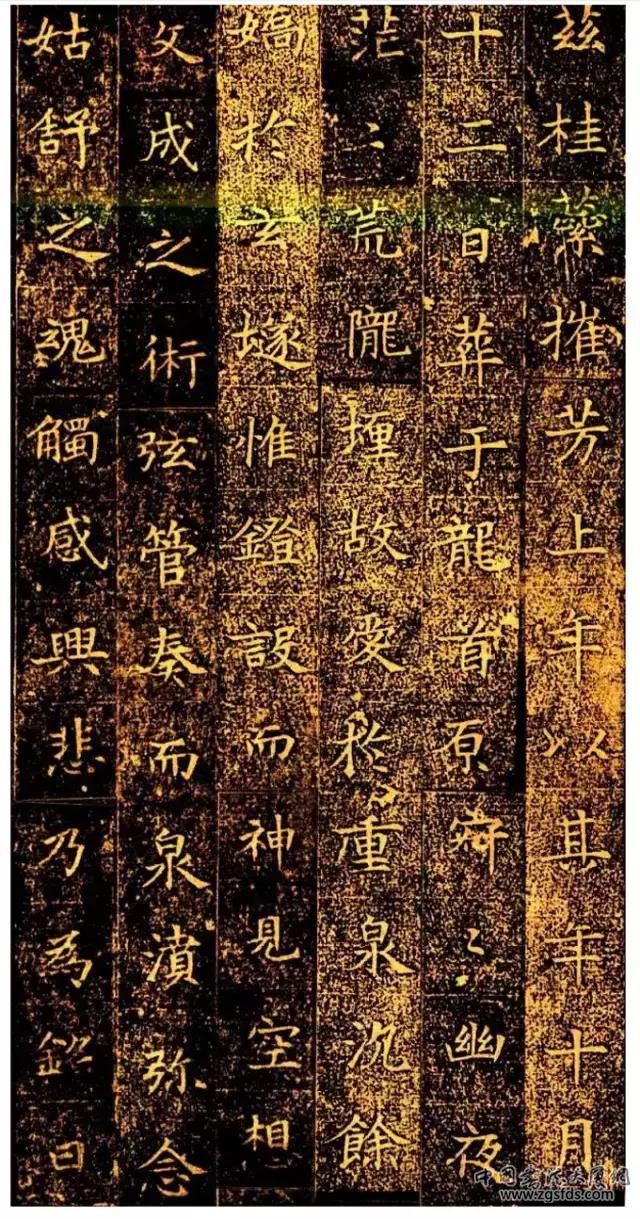 茲桂蘂摧芳上年以其年十月
十二日葬于龍首原寂〻幽夜
茫〻荒隴埋故愛於重泉沉餘
嬌於玄𡑞惟鐙設而神見空想
文成之術弦管奏而泉濆弥念
姑舒之魂觸感興悲乃為銘曰
www.zgsfds.com